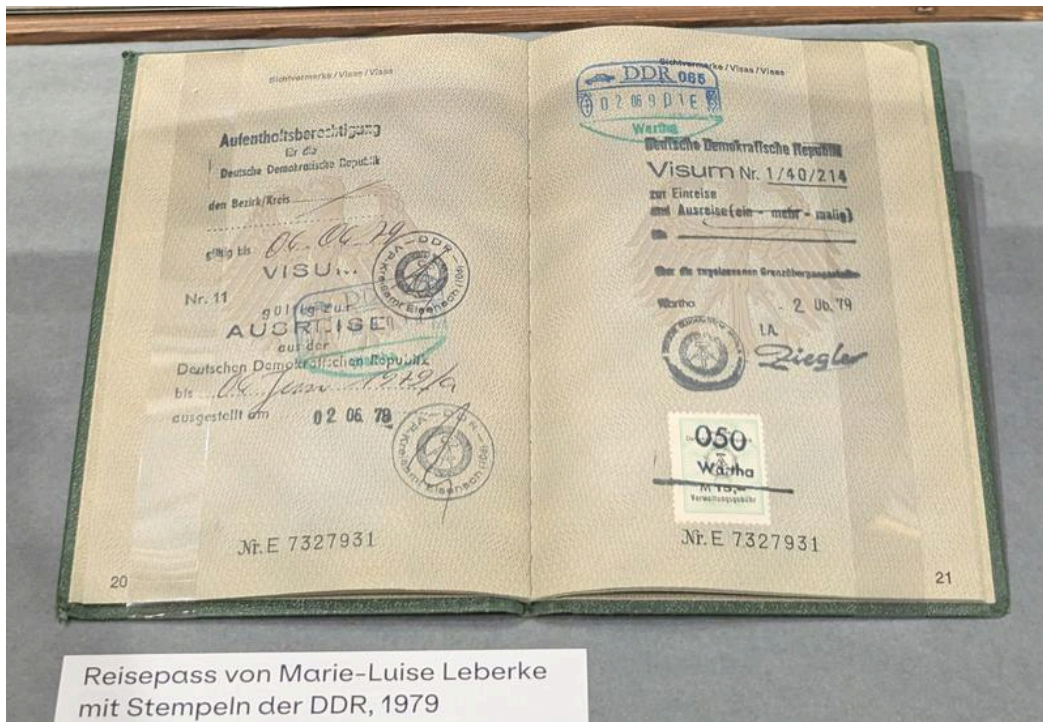 Sichtvermerke / Visas / Visas
Aufenthaltsberechtigung
für die
Deutsche Demokratische Republik
den Bezirk/Kreis
gültig bis 06. 06. 79
VISUM
Nr. 11
gültig zur
AUSREISE
aus der
Deutschen Demokratischen Republik
bis 06. Juni 1979
ausgestellt am 02 06. 79
VP-Kreisamt Eisenach (106)
DDR
VP-Kreisamt Eisenach (106)
DDR
DDR
Nr. E 7327931
20
Sichtvermerke / Visas / Visas
DDR 065
02 06 9 01 E
Wartha
Deutsche Demokratische Republik
Visum Nr. 1/40/214
zur Einreise
und Ausreise (ein - mehr - malig)
über die zugelassenen Grenzübergangsstellen
Wartha - 2. 06. 79
I.A.
Ziegler
050
Wartha
M 15,-
Verwaltungsgebühr
Nr. E 7327931
21
Reisepass von Marie-Luise Leberke
mit Stempeln der DDR, 1979